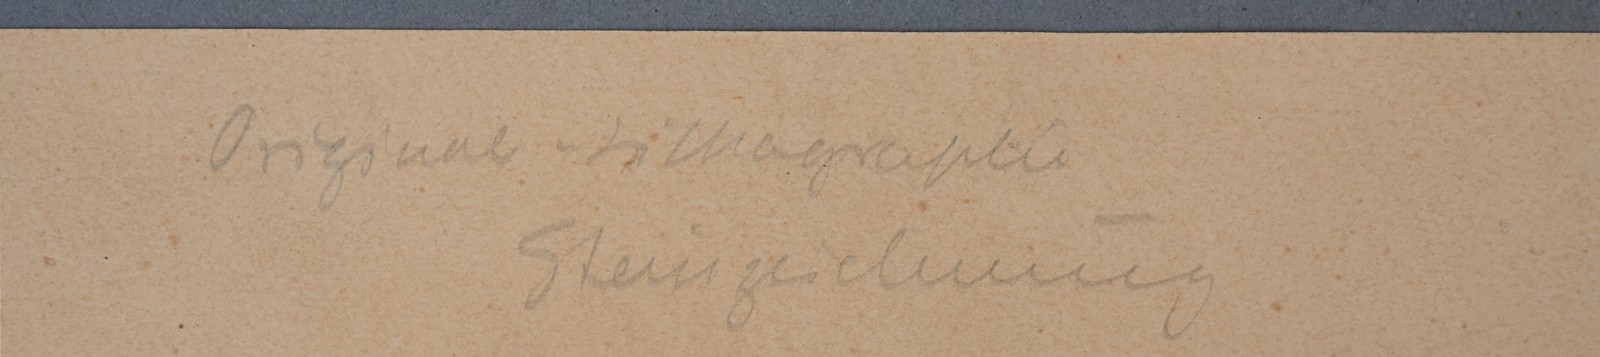 Original-Lithographie
Steinzeichnung